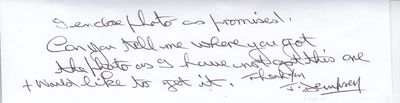 I enclose photo as promised.
Can you tell me where you got
the photo as I have not got this one
+ Would like to get it. Thank you
J. Dempsey